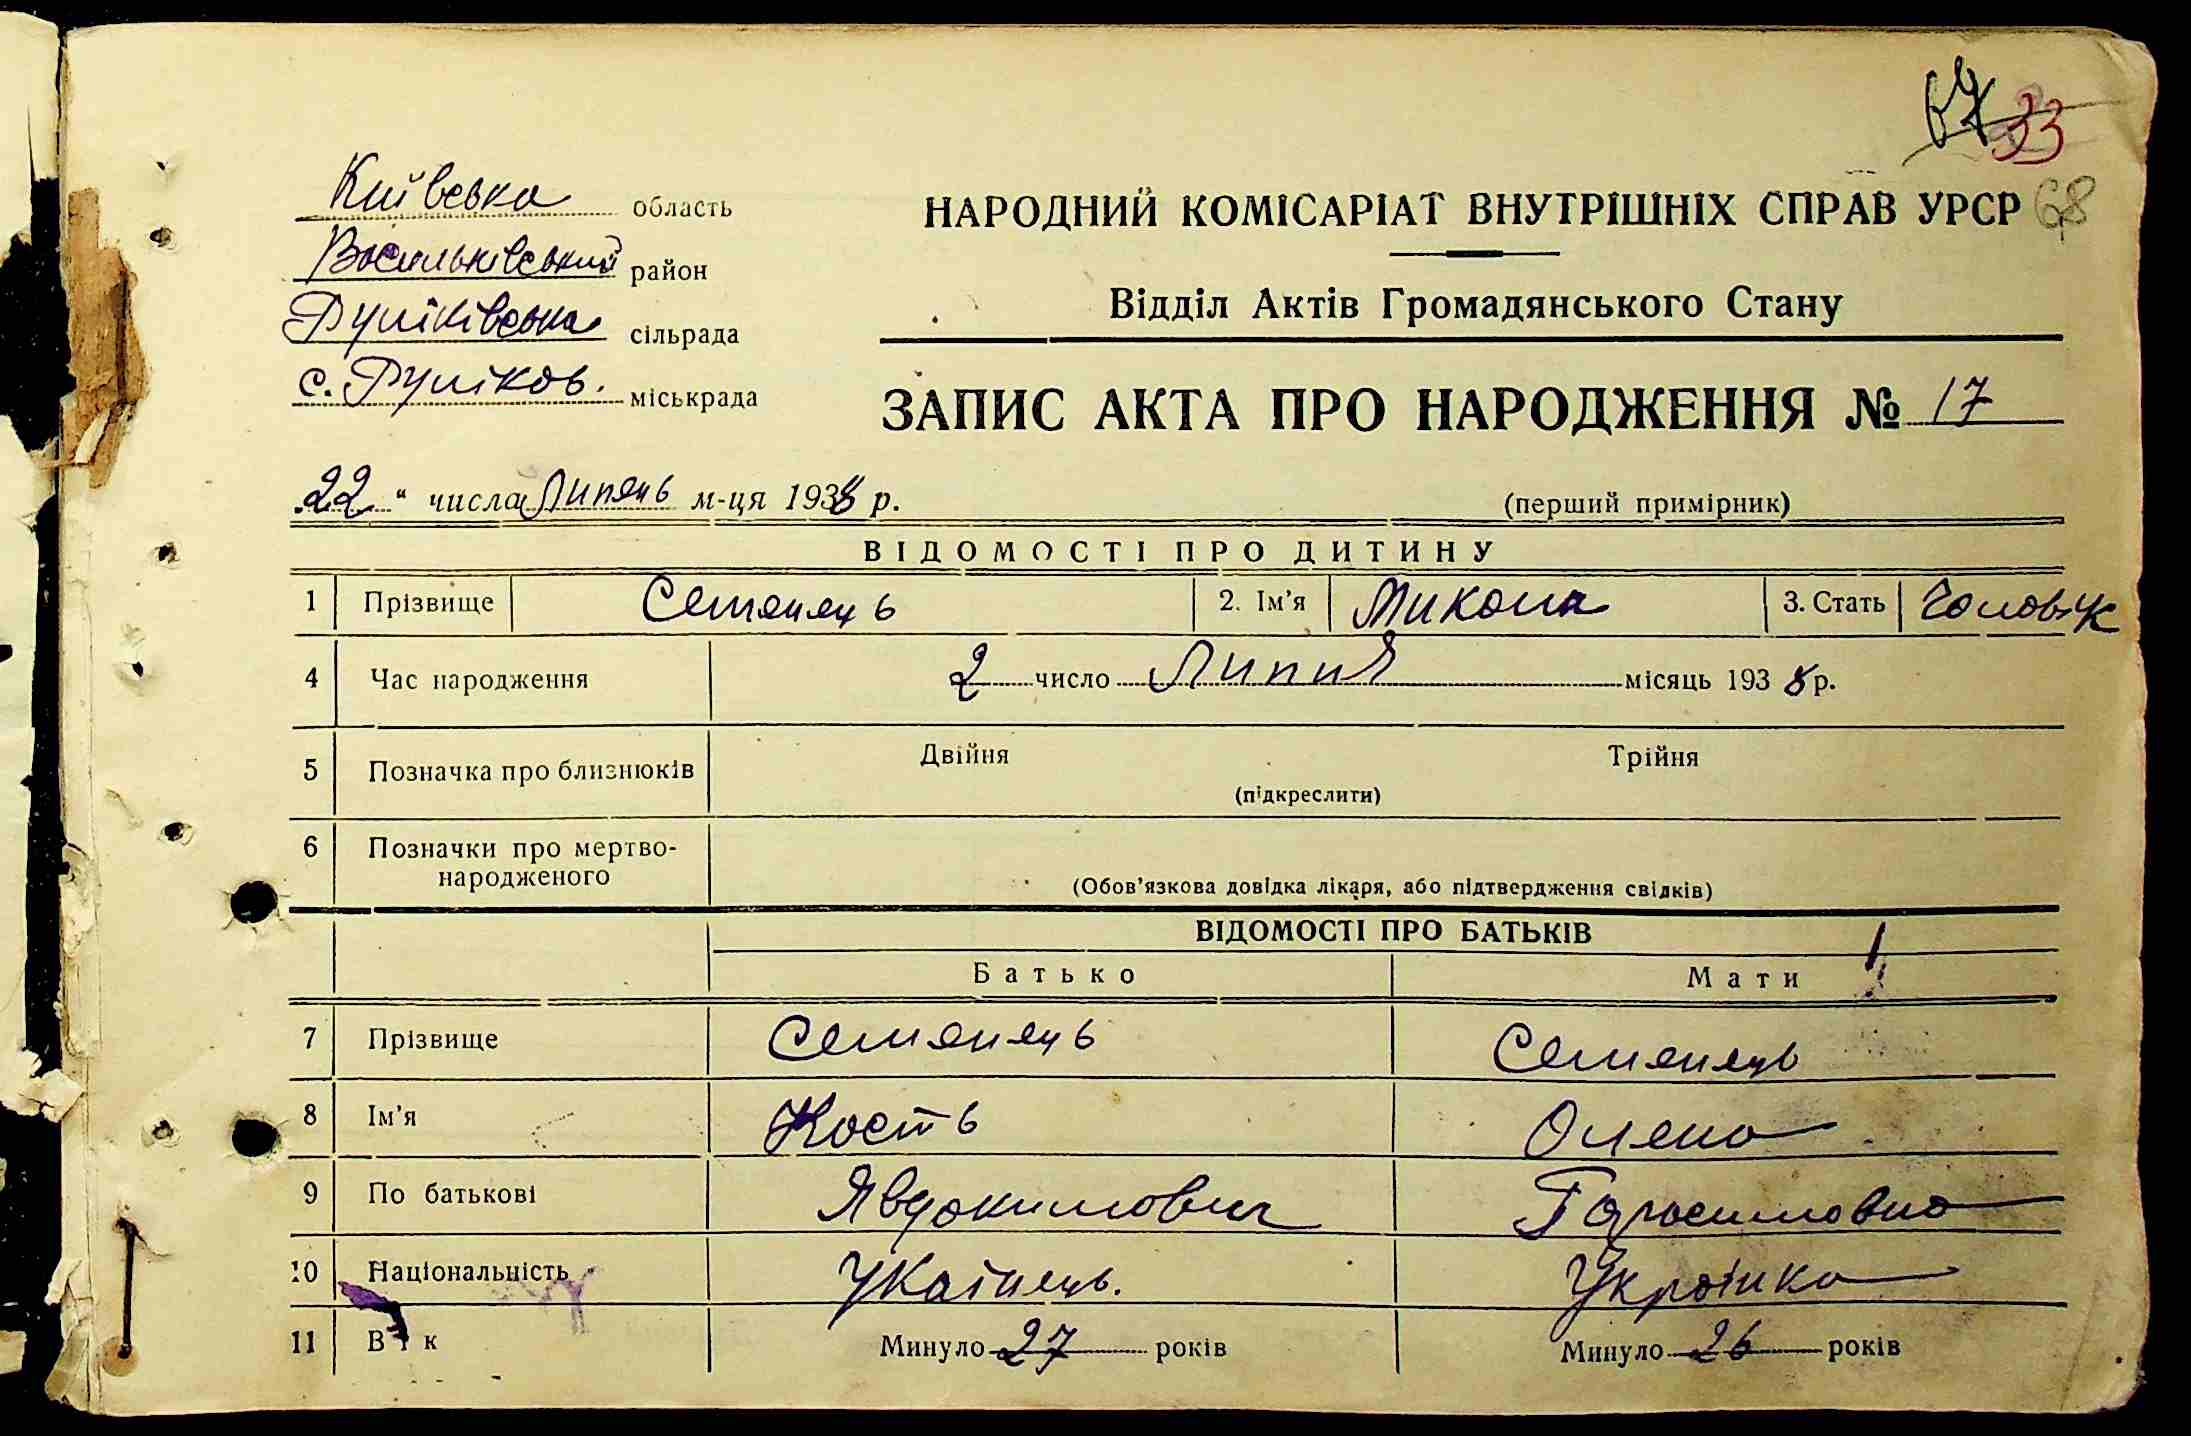 67 33
68
Київська область
Васильківський район
Руликівська сільрада
с. Руликов. міськрада
НАРОДНИЙ КОМІСАРІАТ ВНУТРІШНІХ СПРАВ УРСР
Відділ Актів Громадянського Стану
ЗАПИС АКТА ПРО НАРОДЖЕННЯ № 17
22 " числа Липень м-ця 1938 р.
(перший примірник)
ВІДОМОСТІ ПРО ДИТИНУ
1 Прізвище Семенець 2. Ім'я Микола 3. Стать Чоловік
4 Час народження 2 число Липня місяць 1938 р.
5 Позначка про близнюків Двійня Трійня
(підкреслити)
6 Позначки про мертво-
народженого
(Обов'язкова довідка лікаря, або підтвердження свідків)
ВІДОМОСТІ ПРО БАТЬКІВ
Батько Мати
7 Прізвище Семенець Семенець
8 Ім'я Кость Олена
9 По батькові Явдокимович Гарасимовна
10 Національність Укаїнець. Українка
11 Вік Минуло 27 років Минуло 26 років